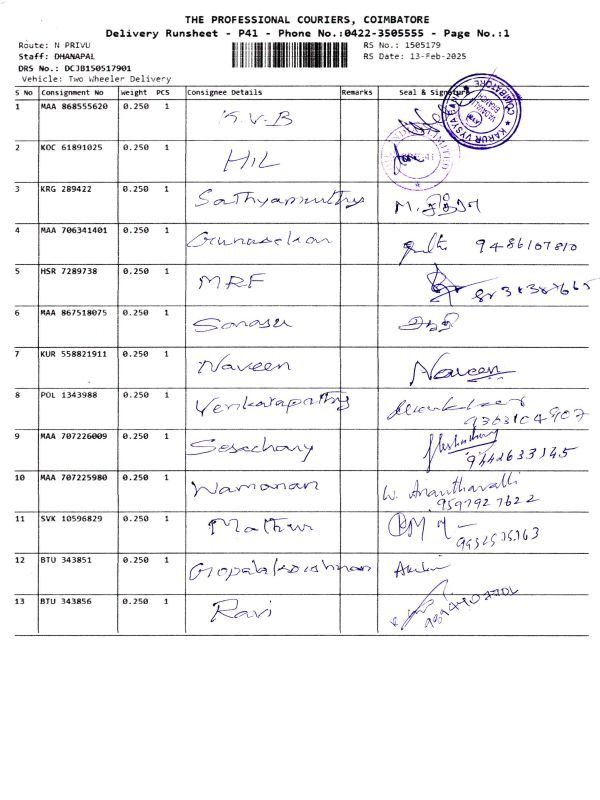 THE PROFESSIONAL COURIERS, COIMBATORE
Delivery Runsheet - P41 - Phone No.:0422-3505555 - Page No.:1
Route: N PRIVU RS No.: 1505179
Staff: DHANAPAL RS Date: 13-Feb-2025
DRS No.: DCJB150517901
Vehicle: Two Wheeler Delivery
S No Consignment No Weight PCS Consignee Details Remarks Seal & Signature
1 MAA 868555620 0.250 1 K.V.B
KARUR VYSYA BANK
VADAVALLI BRANCH
COIMBATORE
2 KOC 61891025 0.250 1 HIL
3 KRG 289422 0.250 1 Sathyamurthy
4 MAA 706341401 0.250 1 Gunasekan 9486107810
5 HSR 7289738 0.250 1 MRF
6 MAA 867518075 0.250 1
7 KUR 558821911 0.250 1 Naveen Naveen
8 POL 1343988 0.250 1 Venkatapathy 9363104907
9 MAA 707226009 0.250 1 Sesachary
10 MAA 707225980 0.250 1 Wamanan W. Ananthavalli
9597927622
11 SVK 10596829 0.250 1 Mathur
12 BTU 343851 0.250 1 Gopalakrishnan
13 BTU 343856 0.250 1 Ravi